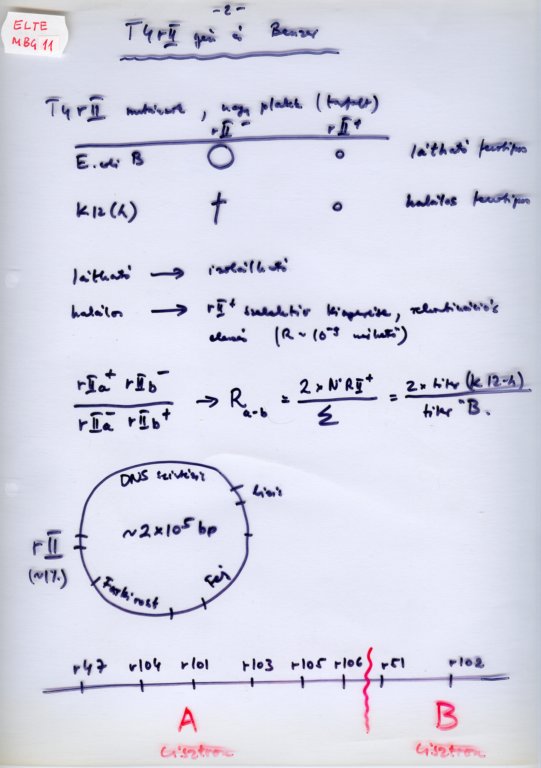 ELTE
MBG 11
-2-
T4rII gén és Benzer
T4rII mutánsok, nagy plakk (tarfolt)
rII⁻ rII⁺
E. coli B látható fenotípus
K12(λ) halálos fenotípus
látható → izolálható
halálos → rII⁺ szelektív kinyerése, rekombinációs
(R ~ 10⁻⁵ mérhető)
rIIa⁺ rIIb⁻
rIIa⁻ rIIb⁺
→ R a-b = 2 × N° RII⁺ / Σ = 2 × titer (K12-λ) / titer "B.
DNS szintézis
lízis
~2×10⁵ bp
rII
(~1%)
Farkirost
Fej
r47 r104 r101 r103 r105 r106 r51 r102
A B
Cisztron Cisztron